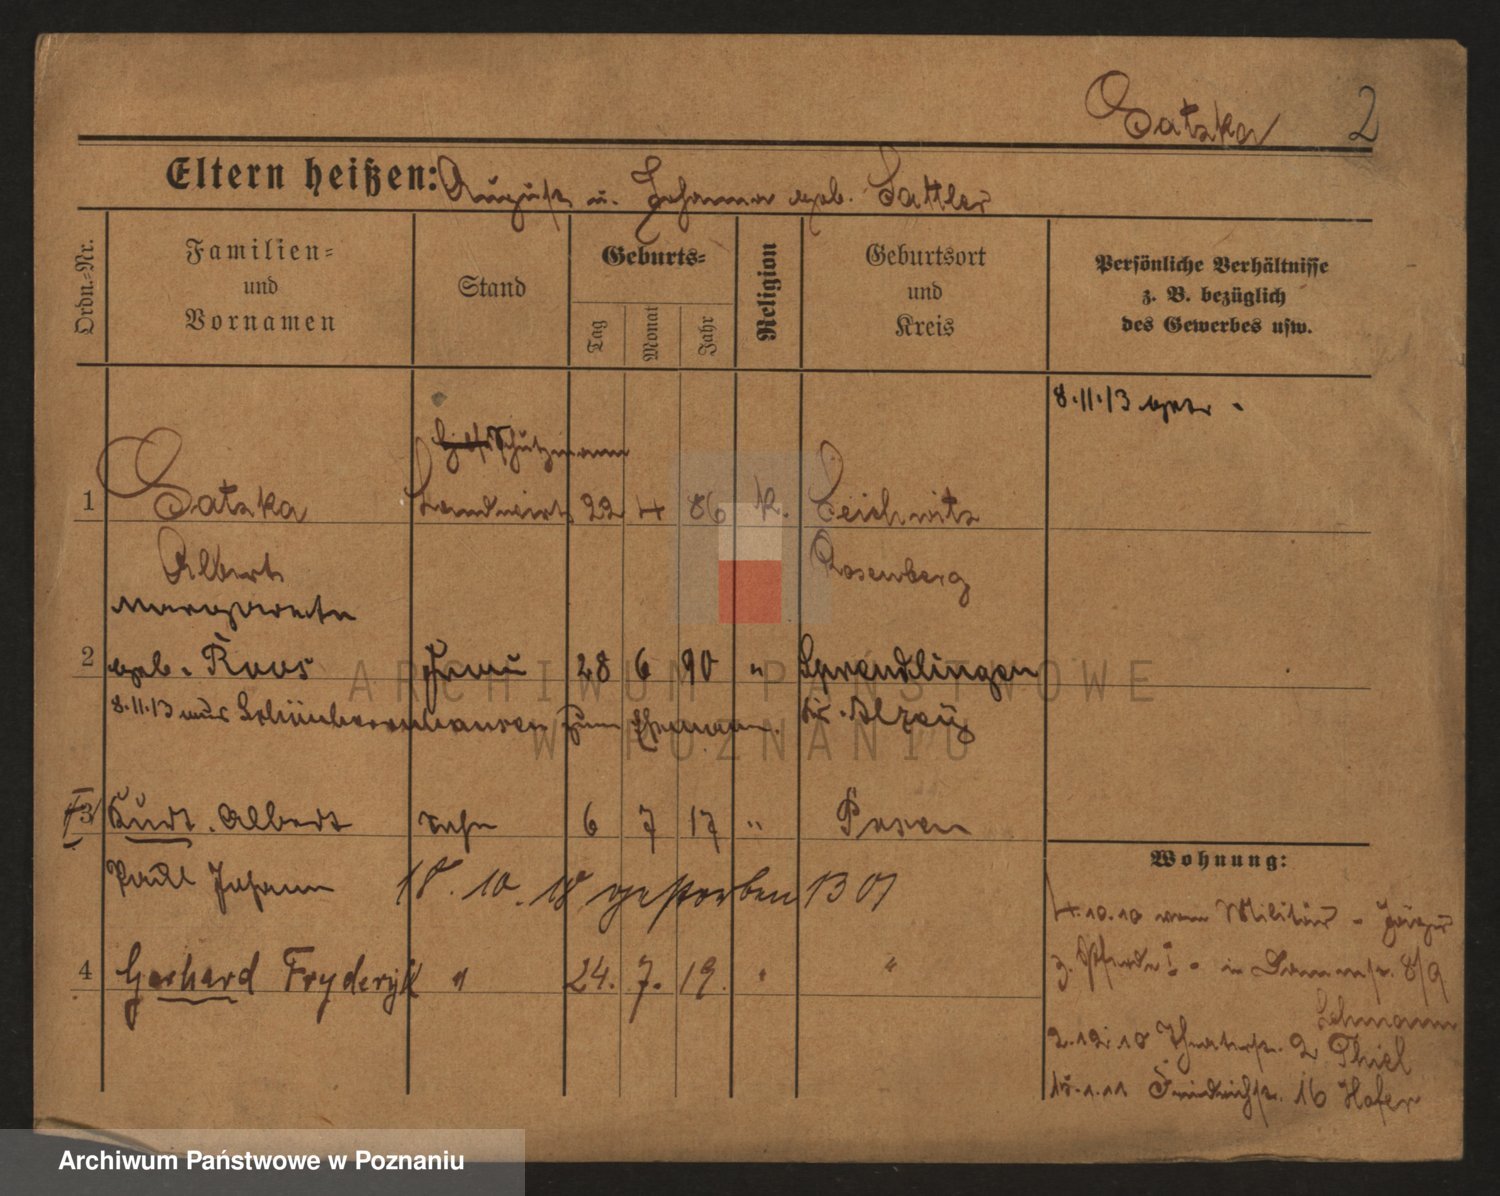 Satzka 2
Eltern heißen: August u. Johanna geb. Sattler
Ordn.-Nr.
Familien-
und
Vornamen
Stand
Geburts-
Tag
Monat
Jahr
Religion
Geburtsort
und
Kreis
Persönliche Verhältnisse
z. B. bezüglich
des Gewerbes usw.
8.11.13
Schutzmann
1 Satzka Landwirt 22 4 86 k. Seichwitz
Albert Rosenberg
Margarete
2 geb. Roos Frau 28 6 90 " Sprendlingen
8.11.13 aus zum Ehemann. Kr. Alzey
3 Kurt. Albert Sohn 6 7 17 " Posen
Paul Johann 18.10.18 gestorben
4 Gerhard Fryderyk " 24. 7. 19. " "
Wohnung:
4.10.10 vom Militär - Jäger
3. Pferde - in 8/9
Lehmann
2.12.10 Theaterstr. 2 Thiel
15.1.11 Friedrichstr. 16 Hofer
ARCHIWUM PAŃSTWOWE
W POZNANIU
Archiwum Państwowe w Poznaniu